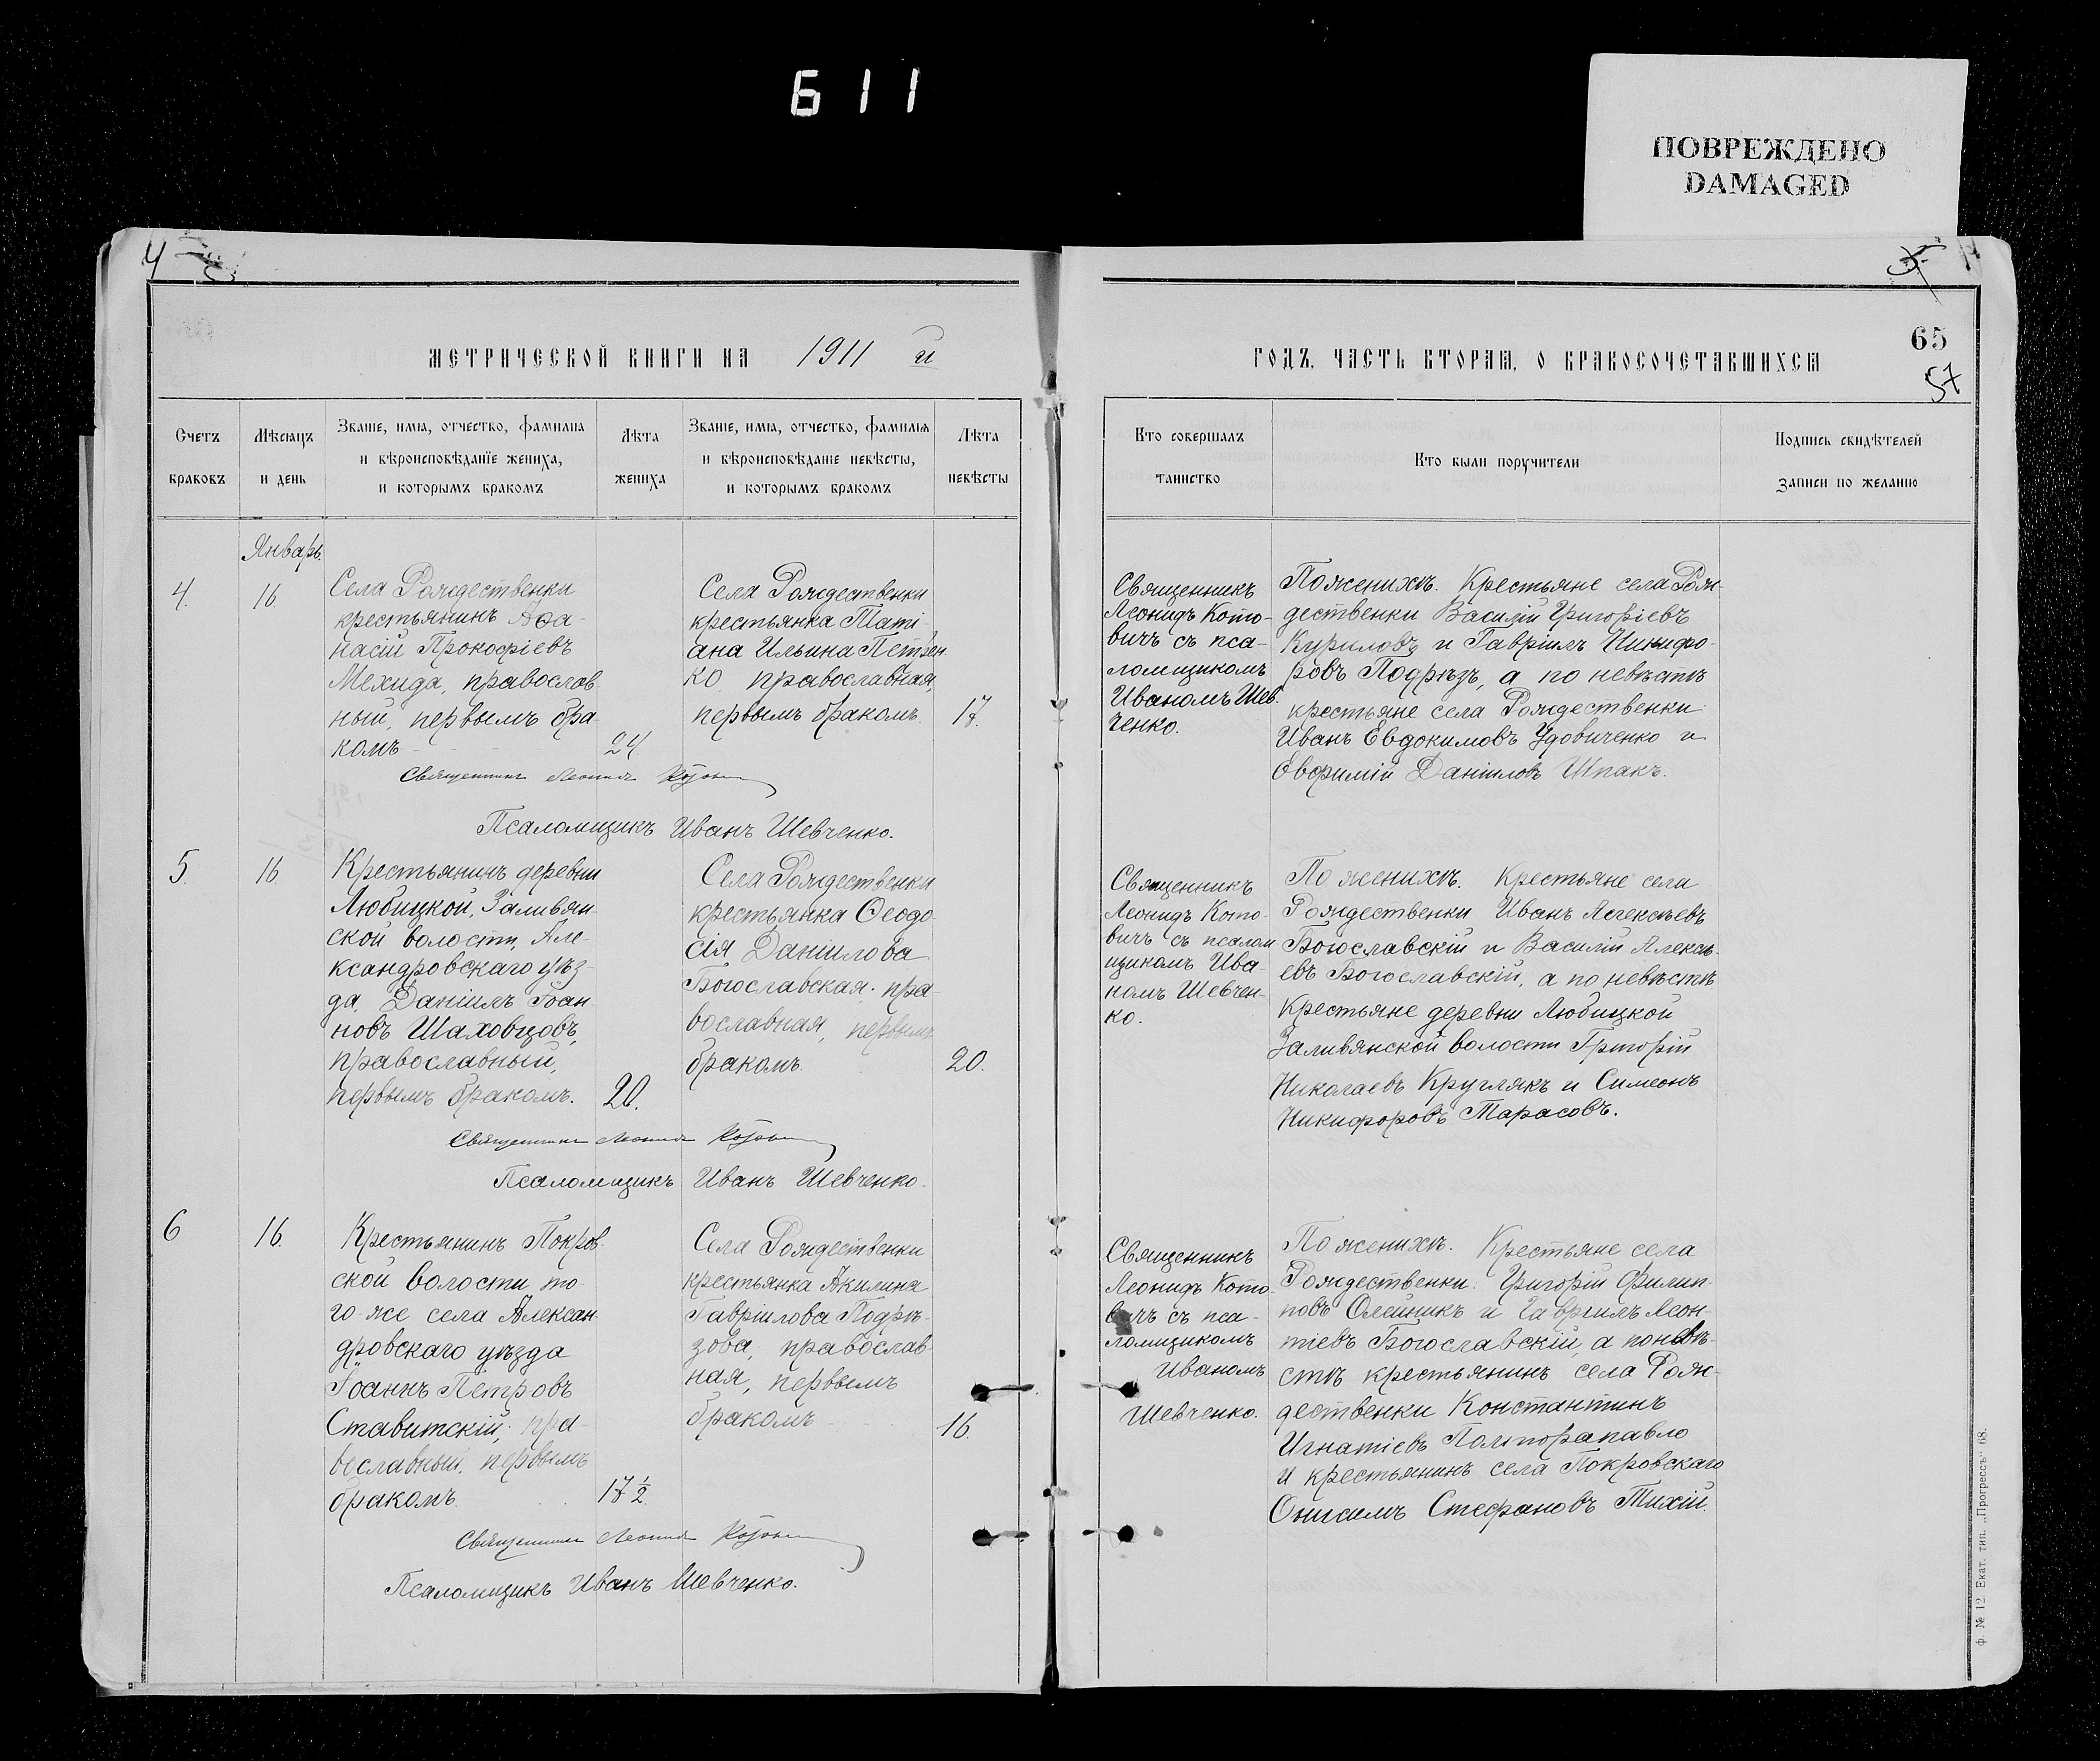 611
ПОВРЕЖДЕНО
DAMAGED
4
65
57
МЕТРИЧЕСКОЙ КНИГИ НА 1911 й
ГОДЪ, ЧАСТЬ ВТОРАЯ, О БРАКОСОЧЕТАВШИХСЯ
Счетъ
браковъ
Мѣсяцъ
и день
Званіе, имя, отчество, фамилія
и вѣроисповѣданіе жениха,
и которымъ бракомъ
Лѣта
жениха
Званіе, имя, отчество, фамилія
и вѣроисповѣданіе невѣсты,
и которымъ бракомъ
Лѣта
невѣсты
Кто совершалъ
таинство
Кто были поручители
Подпись свидѣтелей
записи по желанію
Январь.
4.
16.
Села Рождественки
крестьянинъ Аѳа-
насій Прокофіевъ
Мехида, православ-
ный, первымъ бра-
комъ
24
Села Рождественки
крестьянка Таті-
ана Ильина Петрен-
ко православная,
первымъ бракомъ.
17.
Священникъ
Леонидъ Кото-
вичъ съ пса-
ломщикомъ
Иваномъ Шев-
ченко.
По женихѣ. Крестьяне села Рож-
дественки Василій Григоріевъ
Куриловъ и Гавріилъ Никифо-
ровъ Подрѣзъ, а по невѣстѣ
крестьяне села Рождественки
Иванъ Евдокимовъ Удовиченко и
Евфимій Даніиловъ Шпакъ.
Священникъ Леонидъ Котович
Псаломщикъ Иванъ Шевченко.
5.
16.
Крестьянинъ деревни
Любицкой, Заливян-
ской волости, Але-
ксандровскаго уѣз-
да, Даніилъ Іоан-
новъ Шаховцовъ,
православный,
первымъ бракомъ.
20.
Села Рождественки
крестьянка Ѳеодо-
сія Даніилова
Богославская. пра-
вославная, первымъ
бракомъ.
20.
Священникъ
Леонидъ Кото-
вичъ съ псалом
щикомъ Ива-
номъ Шевчен-
ко.
По женихѣ. Крестьяне села
Рождественки Иванъ Алексѣевъ
Богославскій и Василій Алексѣ-
евъ Богославскій, а по невѣстѣ
Крестьяне деревни Любицкой
Заливянской волости Григорій
Николаевъ Круглякъ и Симеонъ
Никифоровъ Тарасовъ.
Священникъ Леонидъ Котович
Псаломщикъ Иванъ Шевченко.
6
16.
Крестьянинъ Покров-
ской волости то-
го-же села Алексан-
дровскаго уѣзда
Іоаннъ Петровъ
Ставитскій; пра-
вославный, первымъ
бракомъ
17 1/2.
Села Рождественки
крестьянка Акилина
Гавріилова Подрѣ-
зова, православ-
ная, первымъ
бракомъ
16.
Священникъ
Леонидъ Кото-
вичъ съ пса-
ломщикомъ
Иваномъ
Шевченко.
По женихѣ. Крестьяне села
Рождественки: Григорій Филип-
повъ Олейникъ и Гавріилъ Леон-
тіевъ Богославскій, а по невѣ-
стѣ крестьянинъ села Рож-
дественки Константинъ
Игнатіевъ Полторапавло
и крестьянинъ села Покровскаго
Онисимъ Стефановъ Тихій.
Священникъ Леонидъ Котович
Псаломщикъ Иванъ Шевченко.
Ф. № 12. Екат. тип. „Прогрессъ" 68.